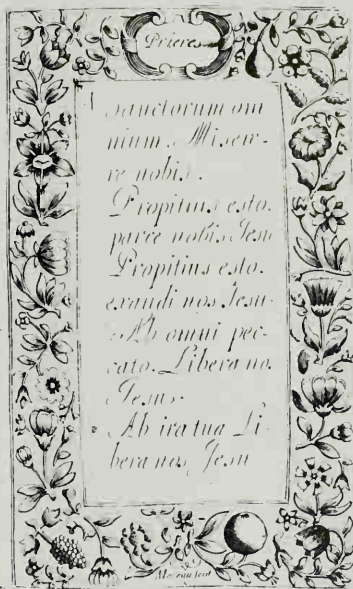 Prieres
sanctorum om
nium. Misere-
re nobis.
Propitius esto.
parce nobis Jesu
Propitius esto.
exaudi nos Jesu.
Ab omni pec-
cato. Libera no.
Jesu.
Ab ira tua Li-
bera nos Jesu